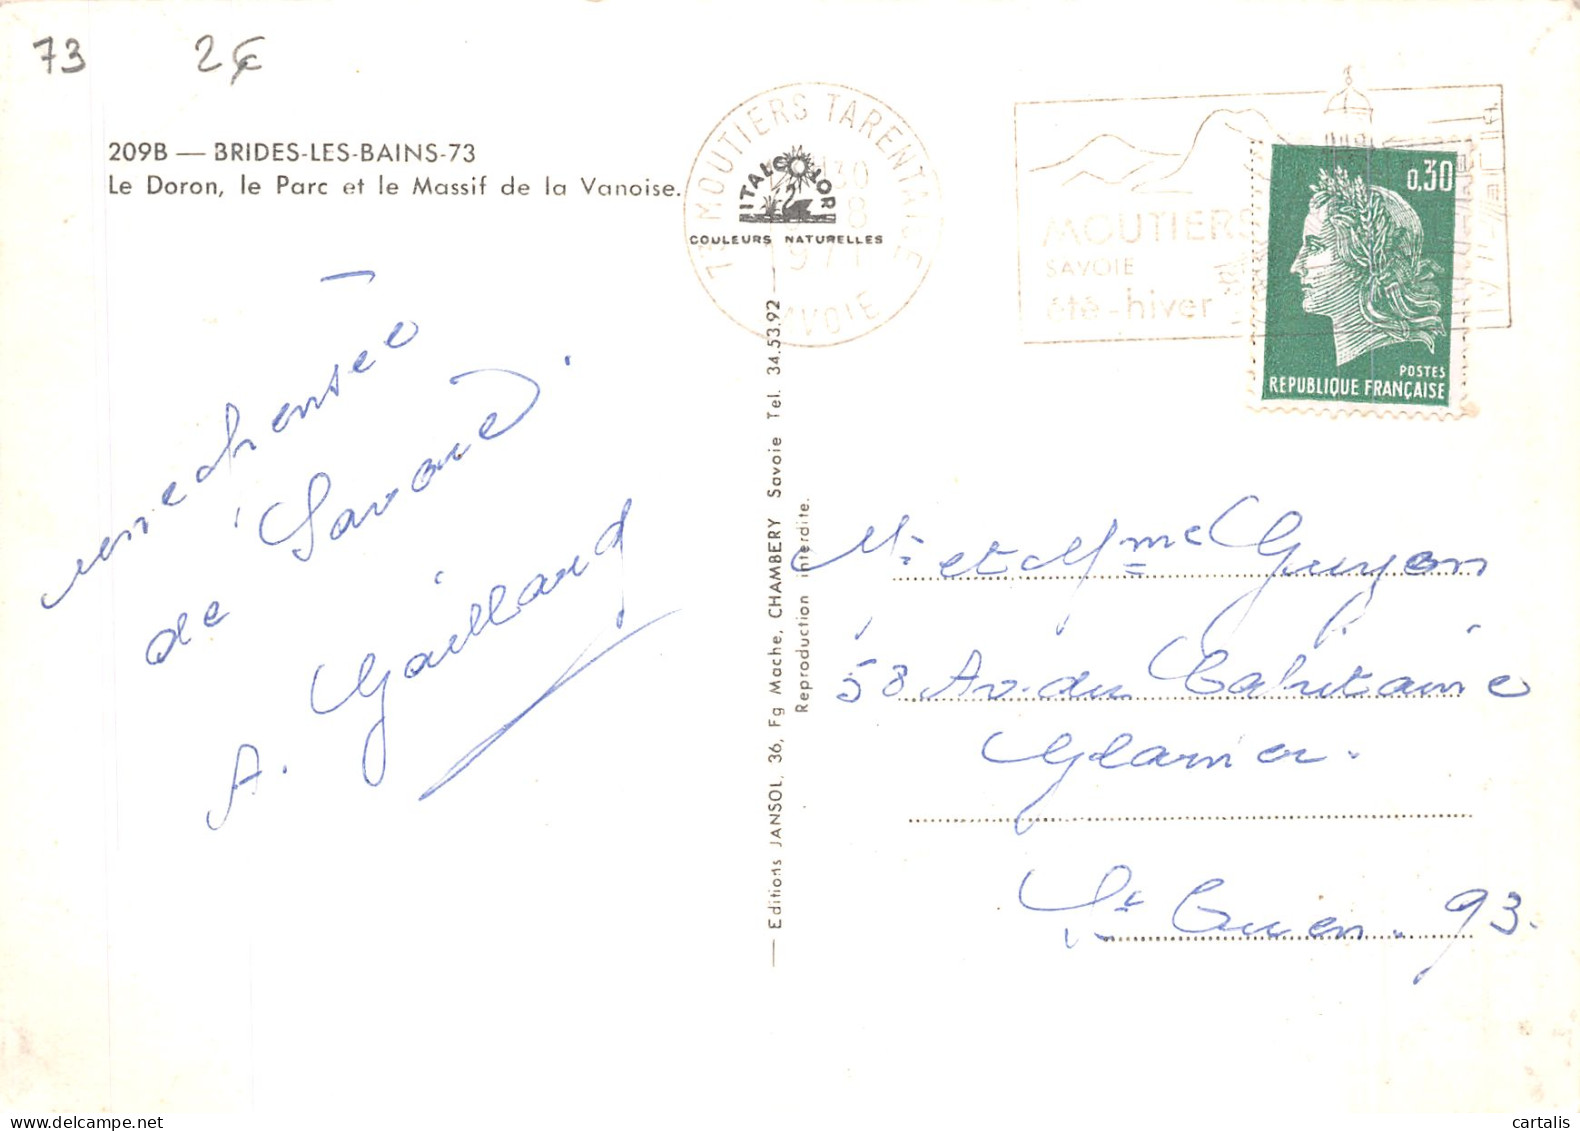 73 2€
209B — BRIDES-LES-BAINS-73
Le Doron, le Parc et le Massif de la Vanoise.
73 MOUTIERS TARENTAISE
30
8
1971
SAVOIE
ITALCOLOR
COULEURS NATURELLES
MOUTIERS
SAVOIE
été-hiver
0,30
POSTES
REPUBLIQUE FRANÇAISE
une pensée
de Savoie.
A. Gaillard
— Editions JANSOL, 36, Fg Mache, CHAMBERY Savoie Tel. 34.53.92 —
Reproduction interdite.
Mr et Mme Guyon
58 Av. du Capitaine
Glarner.
St Ouen. 93.
cartalis